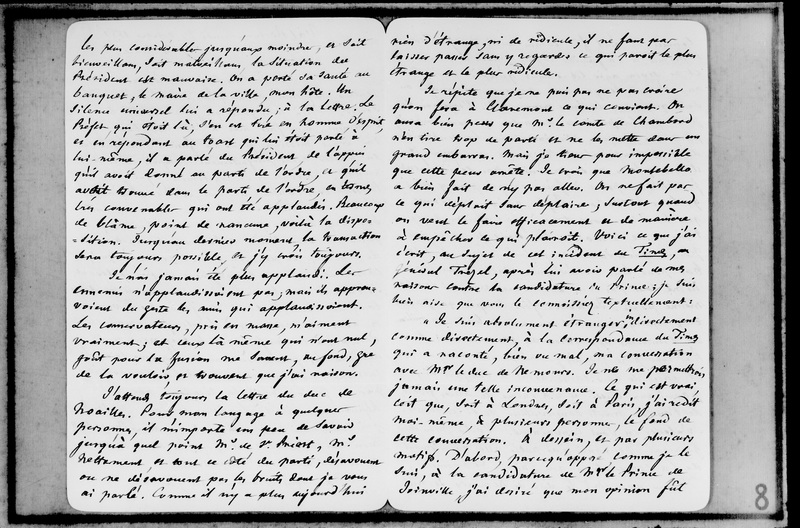 les plus considérables jusqu'aux moindres, et soit
bienveillans, soit malveillans, la situation du
Président est mauvaise. On a porté sa santé au
banquet, le maire de la ville, mon hôte. Un
silence universel lui a répondu; à la lettre. Le
Préfet, qui étoit là, s'en est tiré en homme d'esprit,
et en répondant au toast qui lui étoit porté à
lui-même, il a parlé du Président, de l'appui
qu'il avoit donné au parti de l'ordre, et qu'il
avoit trouvé dans le parti de l'ordre, en termes
très convenables qui ont été applaudis. Beaucoup
de blâme, point de rancune, voilà la dispo-
-sition. Jusqu'au dernier moment la transaction
sera toujours possible, et j'y crois toujours.
Je n'ai jamais été plus applaudi. Les
ennemis n'applaudissoient pas; mais ils approu-
voient du geste les amis qui applaudissoient.
Les conservateurs, pris en masse, n'aiment
vraiment; et ceux là même qui n'ont nul
goût pour la fusion me savent, au fond, gré
de la vouloir et trouvent que j'ai raison.
J'attends toujours la lettre du duc de
Noailles. Pour mon langage à quelques
personnes, il m'importe un peu de savoir
jusqu'à quel point Mr. de St. Priest, Mr.
Nettement, et tout ce côté du parti, désavouent
ou ne désavouent pas les bruits dont je vous
ai parlé. Comme il n'y a plus aujourd'hui
rien d'étrange, ni de ridicule, il ne faut pas
laisser passer sans y regarder ce qui paroît le plus
étrange et le plus ridicule.
Je répète que je ne puis pas ne pas croire
qu'on fera à Claremont ce qui convient. On
aura bien peur que Mr. le comte de Chambord
n'en tire trop de parti et ne les mette dans un
grand embarras. Mais je tiens pour impossible
que cette peur arrête. Je crois que Montebello
a bien fait de n'y pas aller. On ne fait pas
ce qui déplait sans déplaire, surtout quand
on veut le faire efficacement et de manière
à empêcher ce qui plairoit. Voici ce que j'ai
écrit, au sujet de cet incident du Times, au
général Trézel, après lui avoir parlé de mes
raisons contre la candidature du Prince; je suis
bien aise que vous le connoissiez textuellement:
"Je suis absolument étranger, indirectement
comme directement, à la correspondance du Times
qui a raconté, bien ou mal, ma conversation
avec Mgr le duc de Nemours. Je ne me permettrois
jamais une telle inconvenance. Ce qui est vrai,
c'est que, soit à Londres, soit à Paris, j'ai redit
moi-même, à plusieurs personnes, le fond de
cette conversation. À dessein, et par plusieurs
motifs. D'abord, parce qu'opposé comme je le
suis, à la candidature de Mgr le Prince de
Joinville, j'ai desiré que mon opinion fût
8